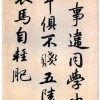 事違同學少
年俱不賤五陵
衣馬自輕肥